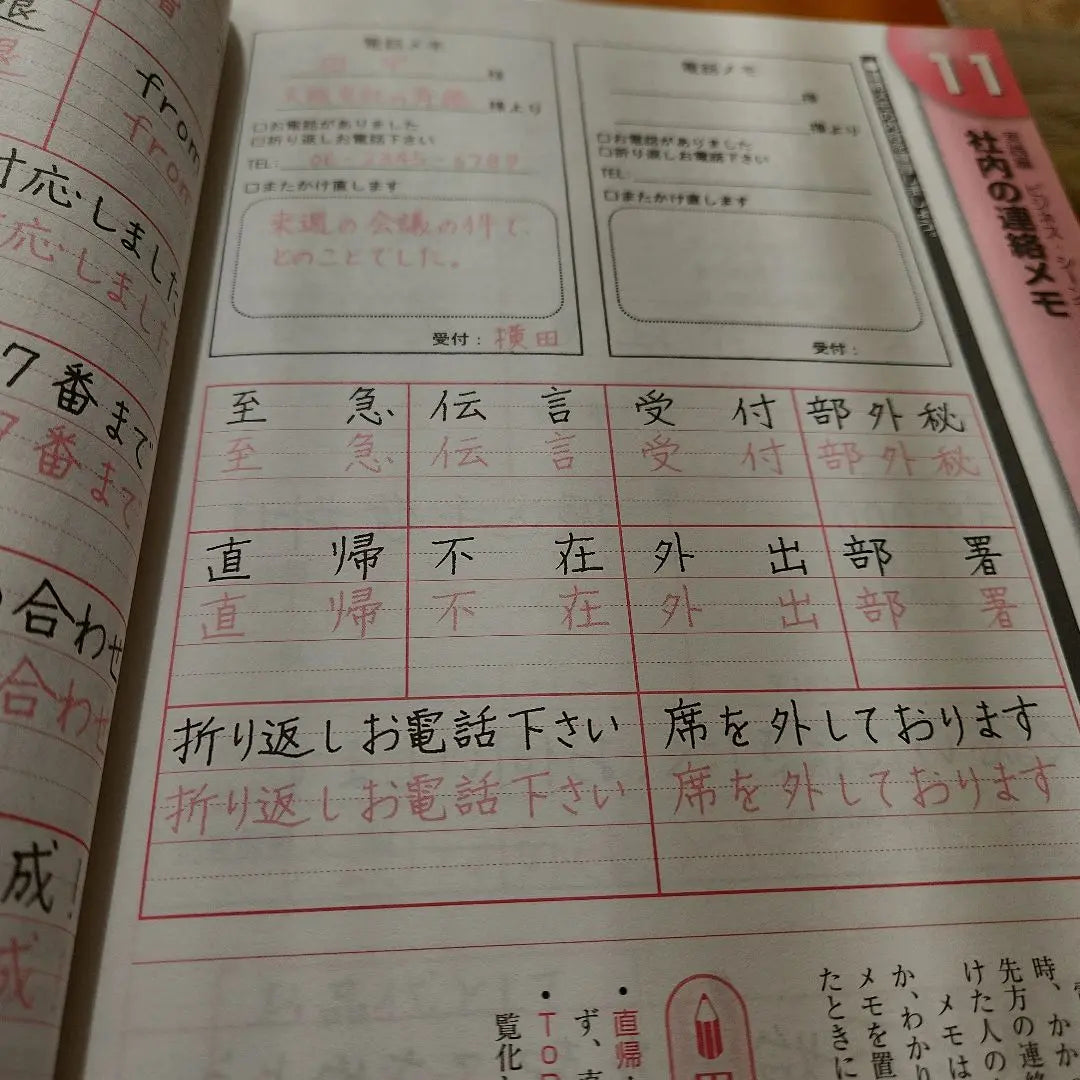 from
from
対応しました
応しました
7番まで
7番まで
合わせ
合わせ
成!
成
電話メモ
様
様より
□お電話がありました
□折り返しお電話下さい
TEL: 06-2345-6789
□またかけ直します
来週の会議の件で、
とのことでした。
受付:横田
電話メモ
様
様より
□お電話がありました
□折り返しお電話下さい
TEL:
□またかけ直します
受付:
11
社内の連絡メモ
至急 伝言 受付 部外秘
至急 伝言 受付 部外秘
直帰 不在 外出 部署
直帰 不在 外出 部署
折り返しお電話下さい 席を外しております
折り返しお電話下さい 席を外しております
時、かか
先方の連絡
けた人の
メモは
か、わかり
メモを置
たときに
・直帰
ず、直
・TO
覧化